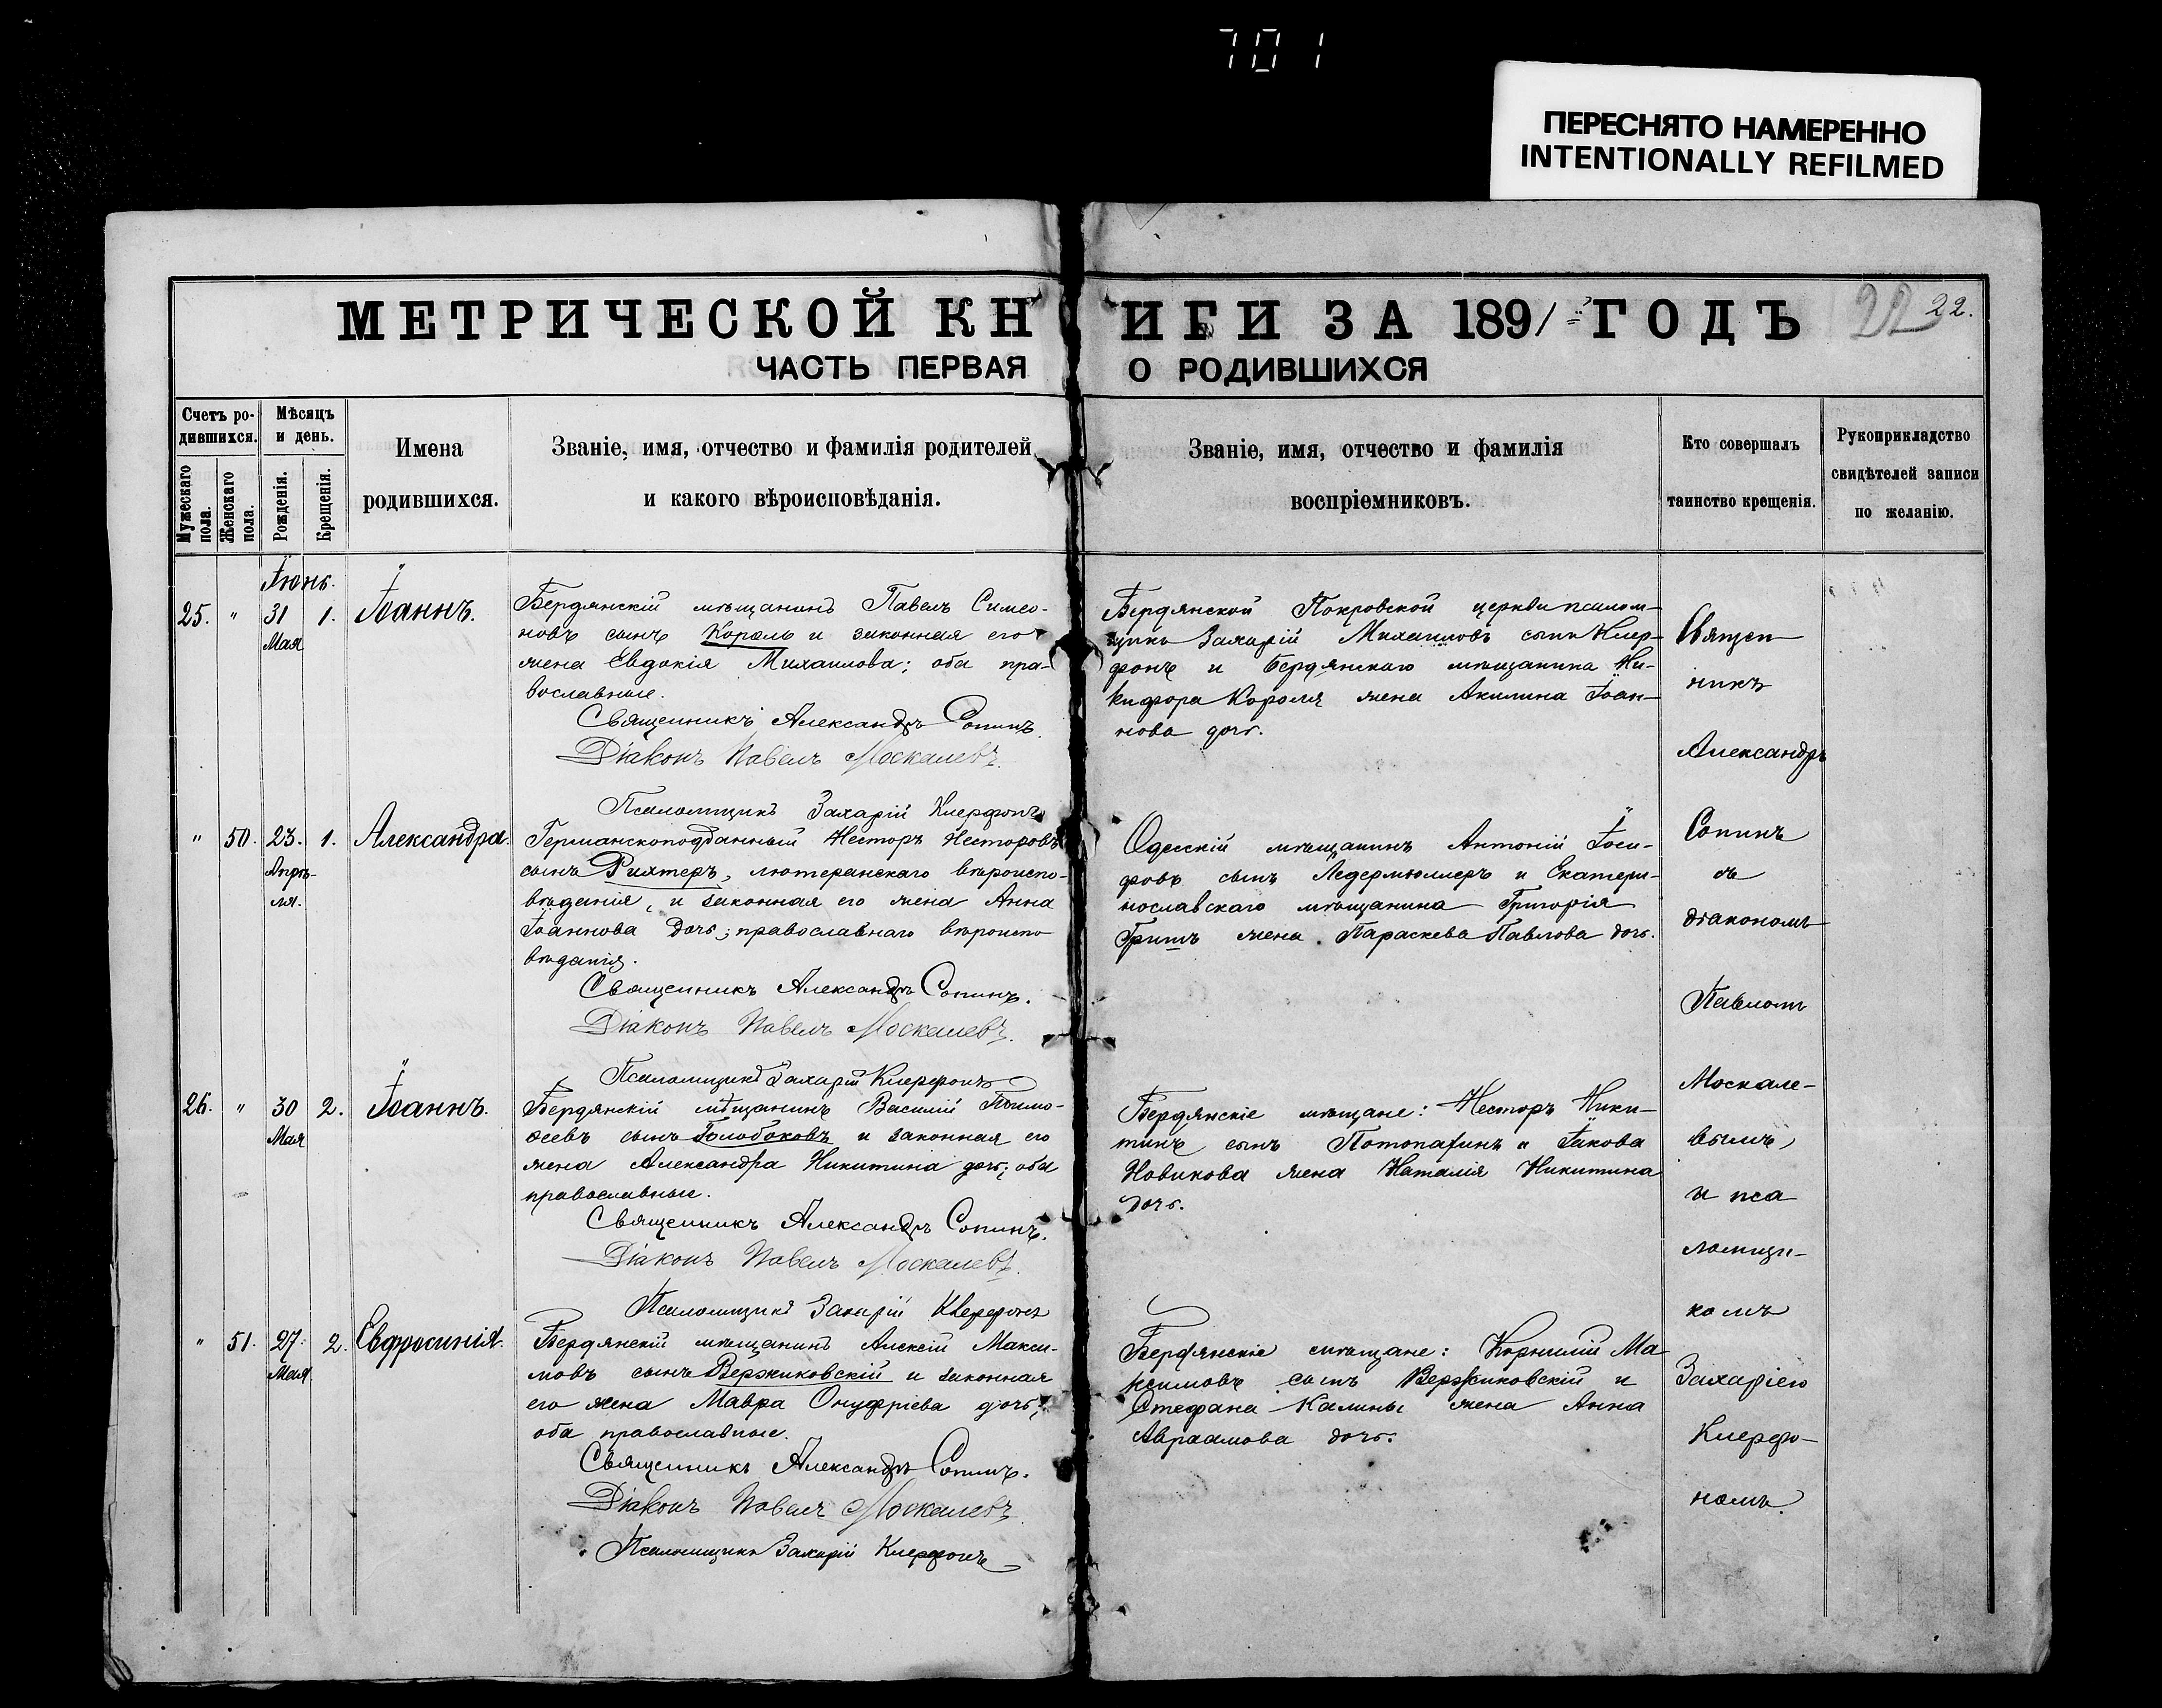 701
ПЕРЕСНЯТО НАМЕРЕННО
INTENTIONALLY REFILMED
МЕТРИЧЕСКОЙ КНИГИ ЗА 1891 ГОДЪ
22 22.
ЧАСТЬ ПЕРВАЯ О РОДИВШИХСЯ
Счетъ ро-
дившихся.
Мужескаго
пола.
Женскаго
пола.
Мѣсяцъ
и день.
Рожденія.
Крещенія.
Имена
родившихся.
Званіе, имя, отчество и фамилія родителей
и какого вѣроисповѣданія.
Званіе, имя, отчество и фамилія
воспріемниковъ.
Кто совершалъ
таинство крещенія.
Рукоприкладство
свидѣтелей записи
по желанію.
Іюнь.
25. " 31 1. Іоаннъ.
Мая
Бердянскій мѣщанинъ Павелъ Симео-
новъ сынъ Король и законная его
жена Евдокія Михаилова; оба пра-
вославные.
Священникъ Александръ Сопинъ.
Діаконъ Павелъ Москалевъ.
Псаломщикъ Захарій Клерфонъ
Бердянской Покровской церкви псалом-
щикъ Захарій Михаиловъ сынъ Клер-
фонъ и бердянскаго мѣщанина Ни-
кифора Короля жена Акилина Іоан-
нова дочь.
" 50. 23. 1. Александра.
Апрѣ-
ля.
Германскоподданный Несторъ Несторовъ
сынъ Рихтеръ, лютеранскаго вѣроиспо-
вѣданія, и законная его жена Анна
Іоаннова дочь; православнаго вѣроиспо-
вѣданія.
Священникъ Александръ Сопинъ.
Діаконъ Павелъ Москалевъ.
Псаломщикъ Захарій Клерфонъ
Одесскій мѣщанинъ Антоній Іоси-
фовъ сынъ Ледермюллеръ и Екатери-
нославскаго мѣщанина Григорія
жена Параскева Павлова дочь.
26. " 30 2. Іоаннъ.
Мая
Бердянскій мѣщанинъ Василій Тимо-
ѳеевъ сынъ Голобоковъ и законная его
жена Александра Никитина дочь; оба
православные.
Священникъ Александръ Сопинъ.
Діаконъ Павелъ Москалевъ.
Псаломщикъ Захарій Клерфонъ
Бердянскіе мѣщане: Несторъ Ники-
тинъ сынъ и Іакова
Новикова жена Наталія Никитина
дочь.
" 51. 27. 2. Евфросинія.
Мая
Бердянскій мѣщанинъ Алексій Макси-
мовъ сынъ Вержиковскій и законная
его жена Мавра Онуфріева дочь;
оба православные.
Священникъ Александръ Сопинъ.
Діаконъ Павелъ Москалевъ
Псаломщикъ Захарій Клерфонъ
Бердянскіе мѣщане: Корнилій Ма
ксимовъ сынъ Вержиковскій и
Стефана Калины жена Анна
Авраамова дочь.
Священ
никъ
Александръ
Сопинъ
съ
діакономъ
Павломъ
Москале-
вымъ,
и пса
ломщи-
комъ
Захаріею
Клерфо-
номъ.